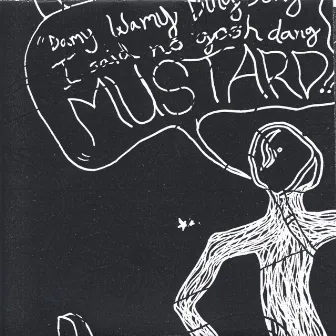 "Damy Wamy Dingy Dang
I said no gosh dang
MUSTARD!!